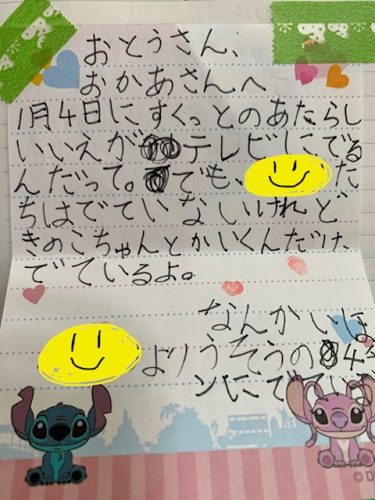 おとうさん、
おかあさんへ
1月4日にすくっとのあたらし
いいえがテレビにでる
んだって。でも、た
ちはでていないけれど
きのこちゃんとかいくんだけ
でているよ。
なんかいほ
より うそうの4
ンにで
©D